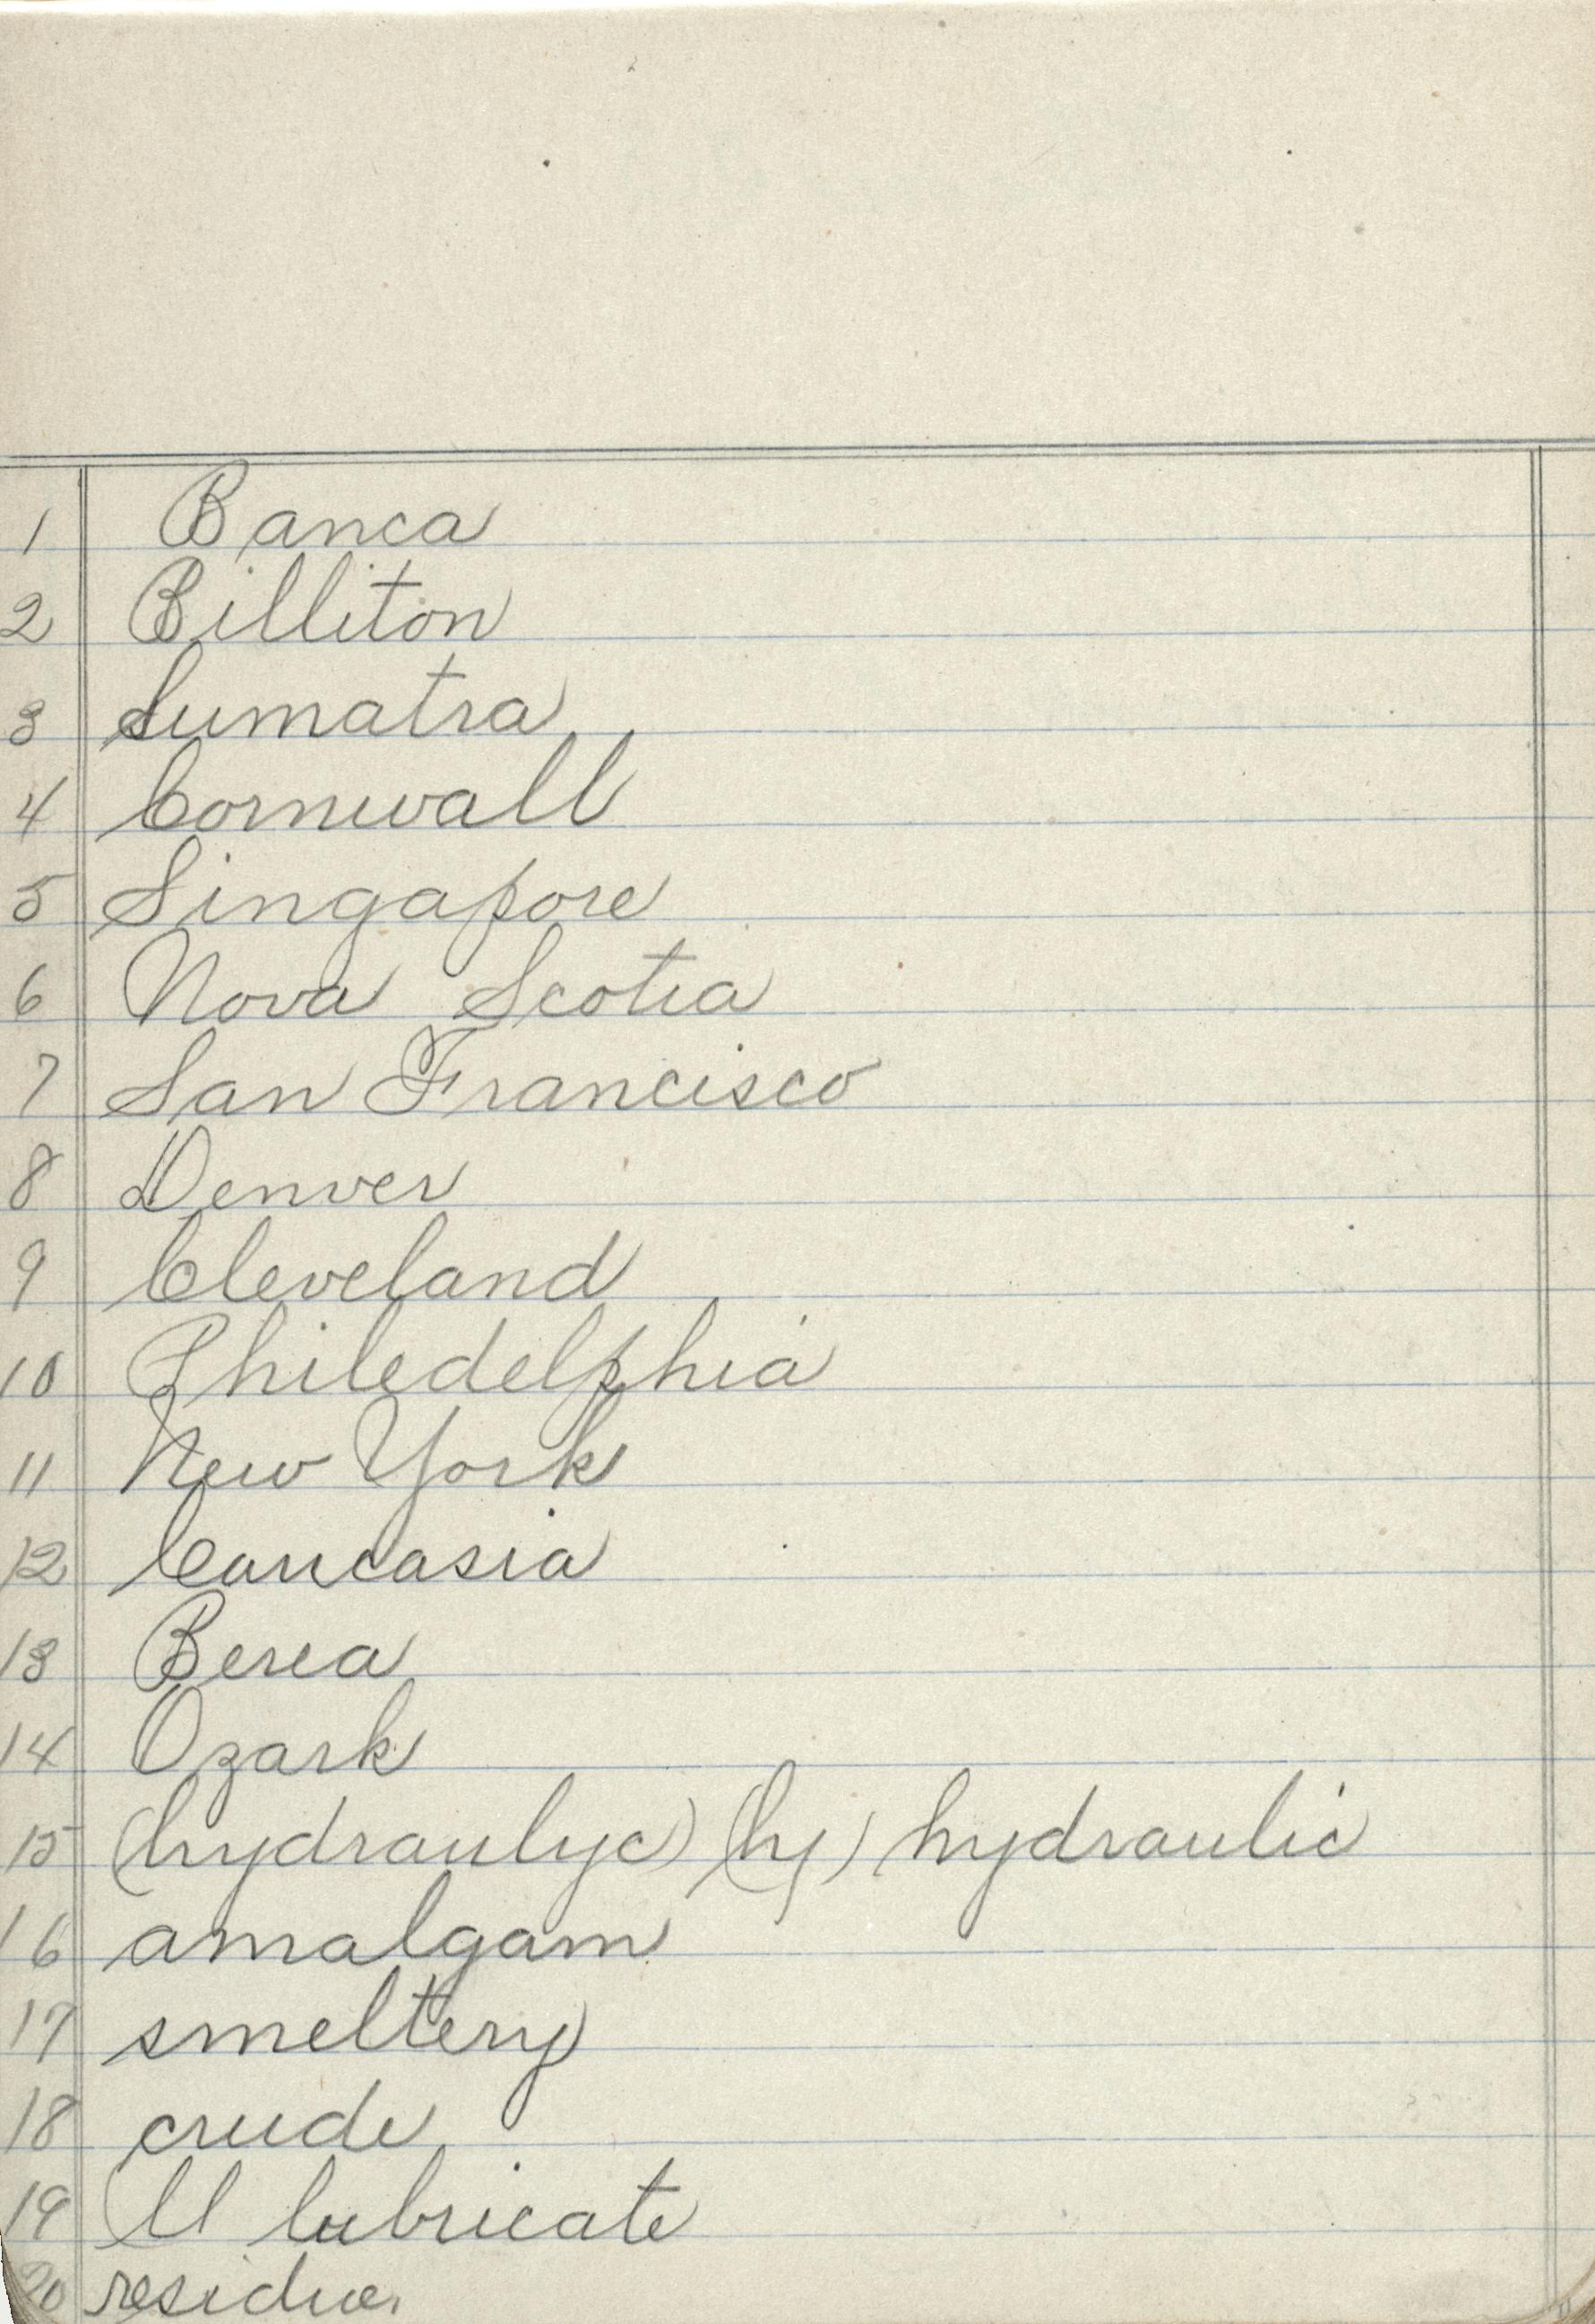 1 Banca
2 Billiton
3 Sumatra
4 Cornwall
5 Singapore
6 Nova Scotia
7 San Francisco
8 Denver
9 Cleveland
10 Philedelphia
11 New York
12 Caucasia
13 Berea
14 Ozark
15 (hydraulyc) (hy) hydraulic
16 amalgam
17 smeltery
18 crude
19 lubricate
20 residue.